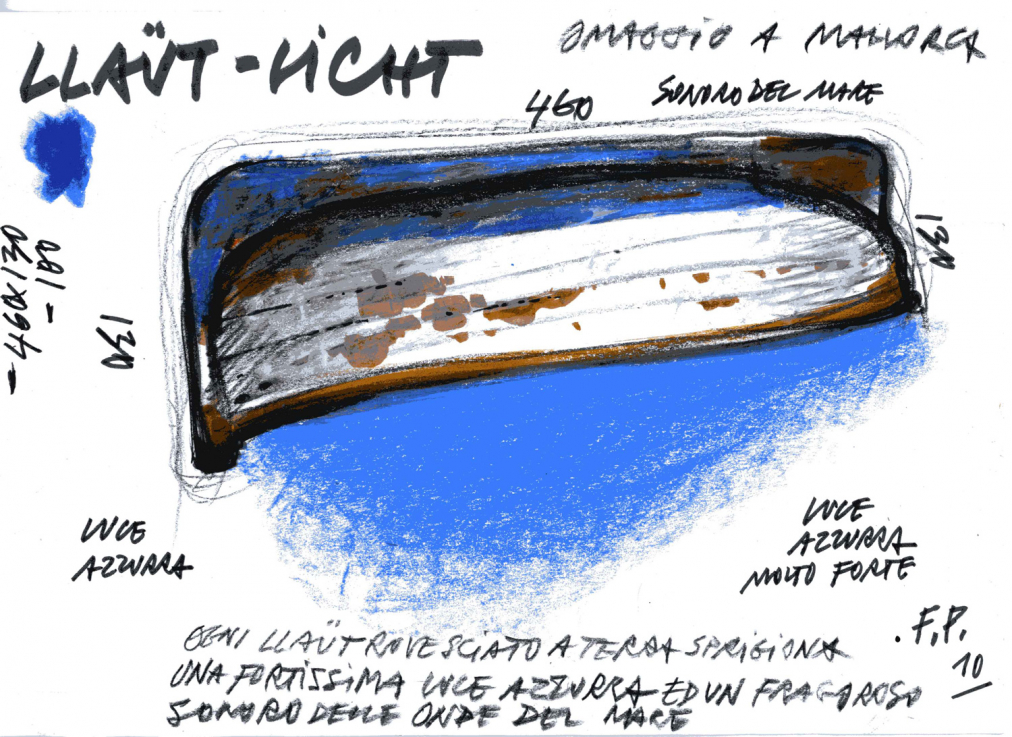 LLAÜT-LICHT
OMAGGIO A MALLORCA
460
SONORO DEL MARE
-460x130
-180
130
130
LUCE
AZZURRA
LUCE
AZZURRA
MOLTO FORTE
OGNI LLAÜT ROVESCIATO A TERRA SPRIGIONA
UNA FORTISSIMA LUCE AZZURRA ED UN FRAGOROSO
SONORO DELLE ONDE DEL MARE
.F.P.
10